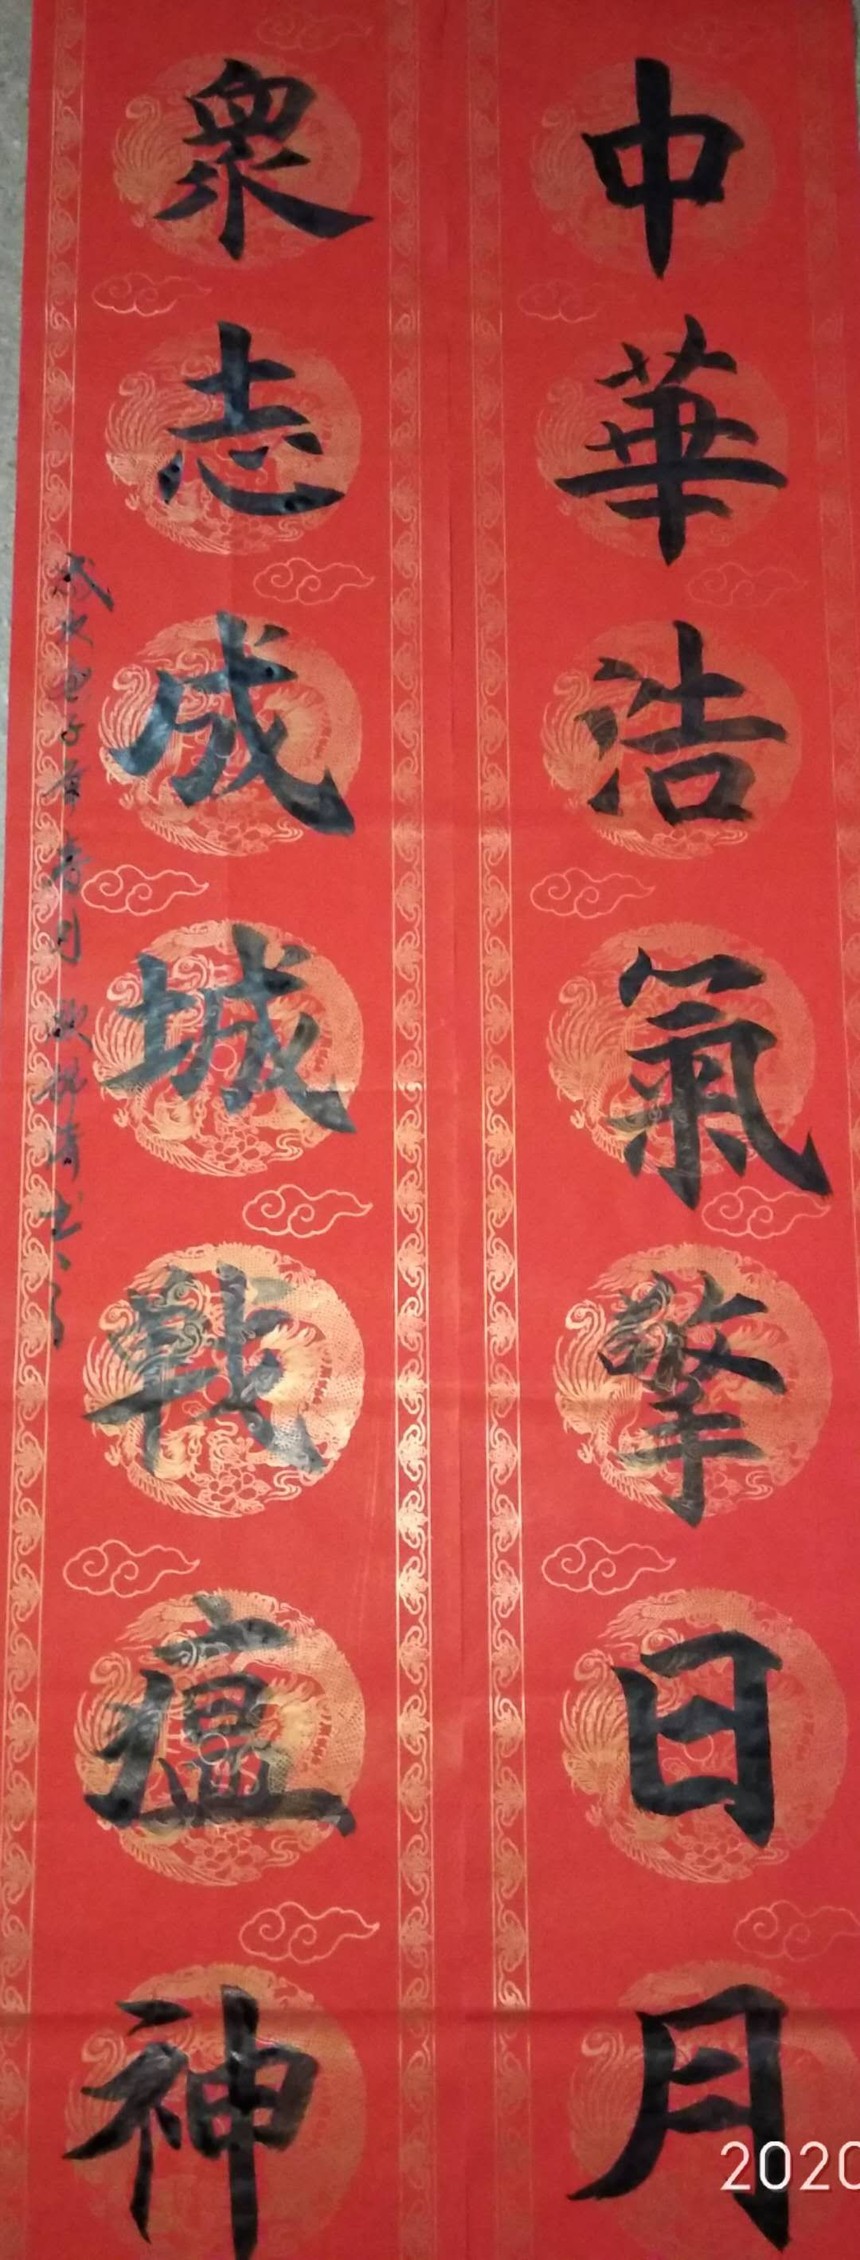 中華浩氣擎日月
眾志成城戰瘟神
2020